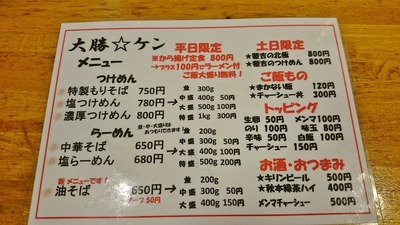 大勝☆ケン
メニュー
つけめん
特製もりそば 750円
塩つけめん 780円
濃厚つけめん 800円
並 300g
中盛 400g 50円
大盛 500g 100円
特盛 1kg 300円
らーめん
中華そば 650円
塩らーめん 680円
並 200g
中盛 300g 50円
大盛 400g 100円
特盛 500g 200円
新メニューです!
油そば 650円
スープ 50円
並 200g
中盛 300g 50円
大盛 400g 150円
平日限定
★から揚げ定食 800円
→プラス100円でラーメン付
ご飯大盛り無料!
土日限定
800円
800円
ご飯もの
★まかない飯 120円
★チャーシュー丼 300円
トッピング
生卵 50円 メンマ100円
のり 100円 味玉 80円
辛味 50円 白飯 100円
チャーシュー 100円
お酒・おつまみ
★キリンビール 500円
★秋本緑茶ハイ 400円
メンマチャーシュー 500円